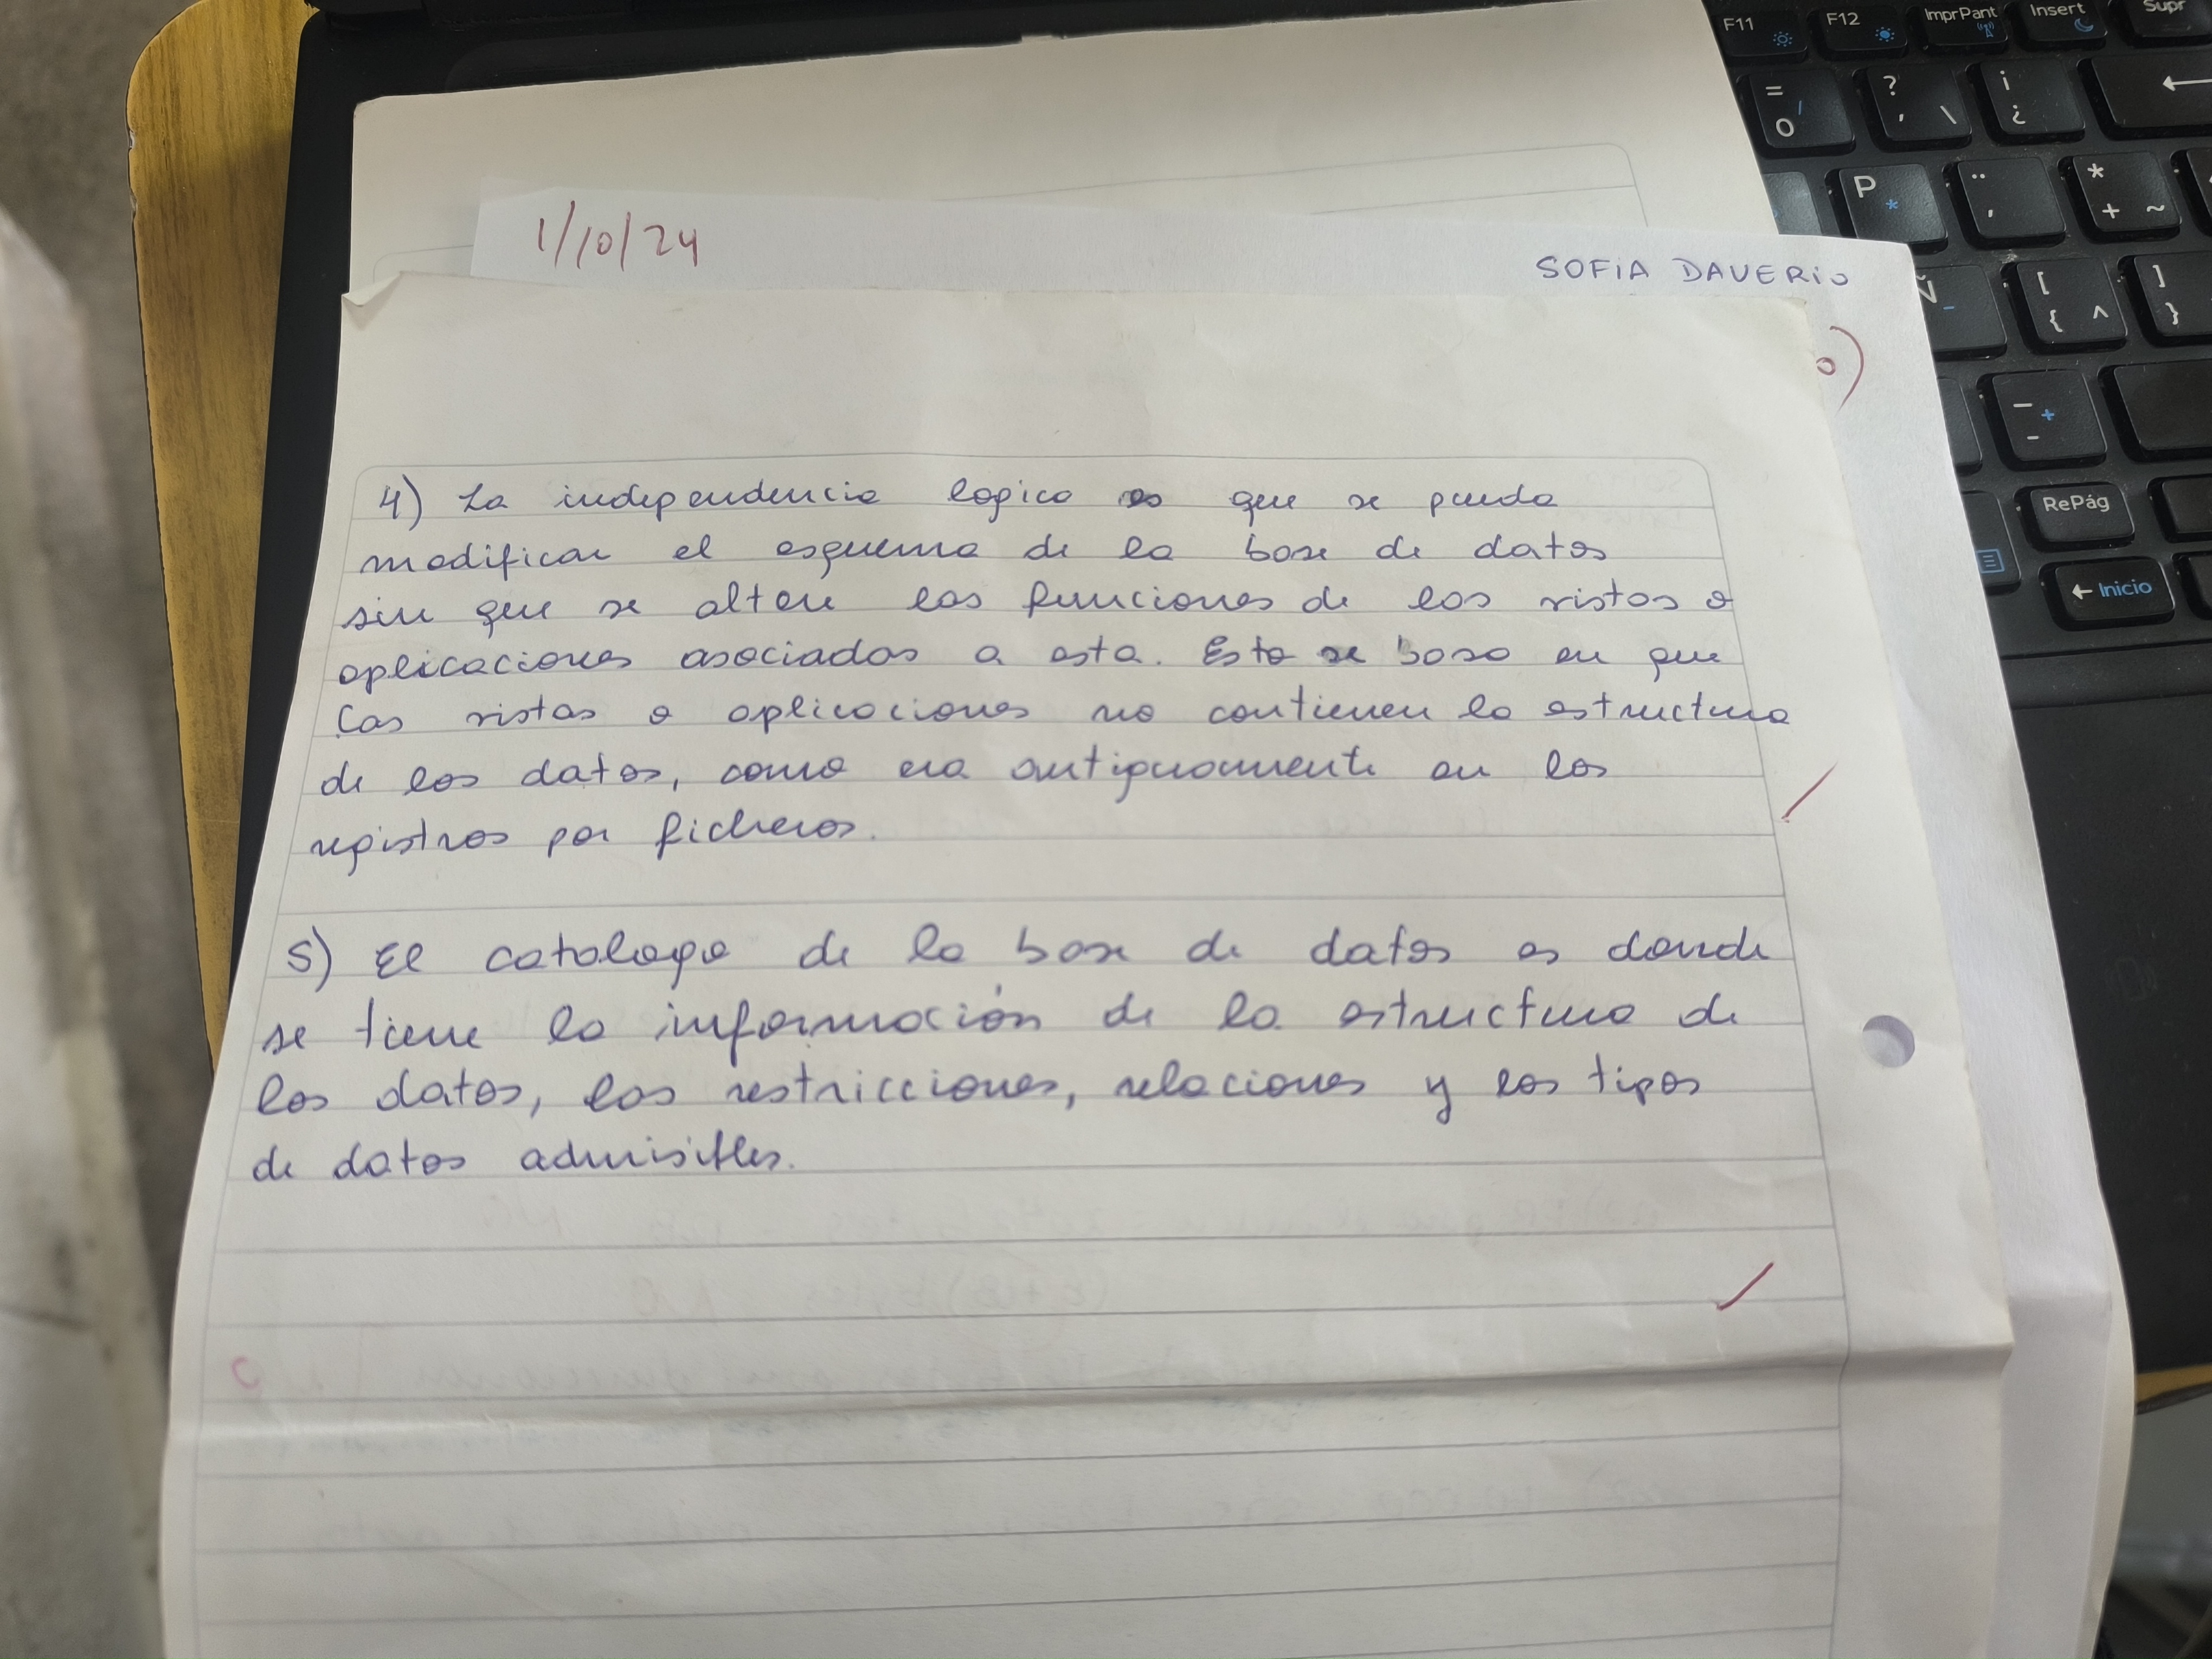 1/10/24
SOFIA DAVERIO
o)
4) La independencia logica es que se pueda
modificar el esquema de la base de datos
sin que se altere las funciones de las vistas o
aplicaciones asociadas a esta. Esto se basa en que
las vistas o aplicaciones no contienen la estructura
de los datos, como era antiguamente en los
registros por ficheros.
5) El catalogo de la base de datos es donde
se tiene la información de la estructura de
los datos, las restricciones, relaciones y los tipos
de datos admisibles.
F11
F12
ImprPant
Insert
Supr
= 0
? ' \
¡ ¿
P *
¨ ´
* + ~
Ñ
[ { ^
] }
RePág
← Inicio